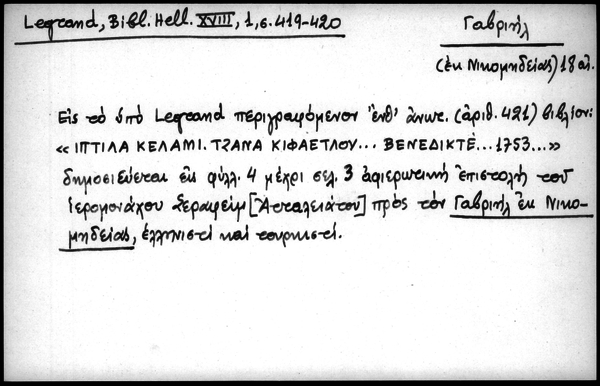 Legrand, Bibl. Hell. XVIII, 1, σ. 419-420
Γαβριήλ
(ἐκ Νικομηδείας) 18 αἰ.
Εἰς τὸ ὑπὸ Legrand περιγραφόμενον ἔνθ' ἀνωτ. (ἀριθ. 421) βιβλίον:
« ΙΠΤΙΛΑ ΚΕΛΑΜΙ. ΤΖΑΝΑ ΚΙΦΑΕΤΛΟΥ... ΒΕΝΕΔΙΚΤΕ̇... 1753...»
δημοσιεύεται ἐν φύλλ. 4 μέχρι σελ. 3 ἀφιερωτική ἐπιστολὴ τοῦ
ἱερομονάχου Σεραφεὶμ [Ἀτταλειάτου] πρὸς τὸν Γαβριὴλ ἐκ Νικο-
μηδείας, ἑλληνιστὶ καὶ τουρκιστί.